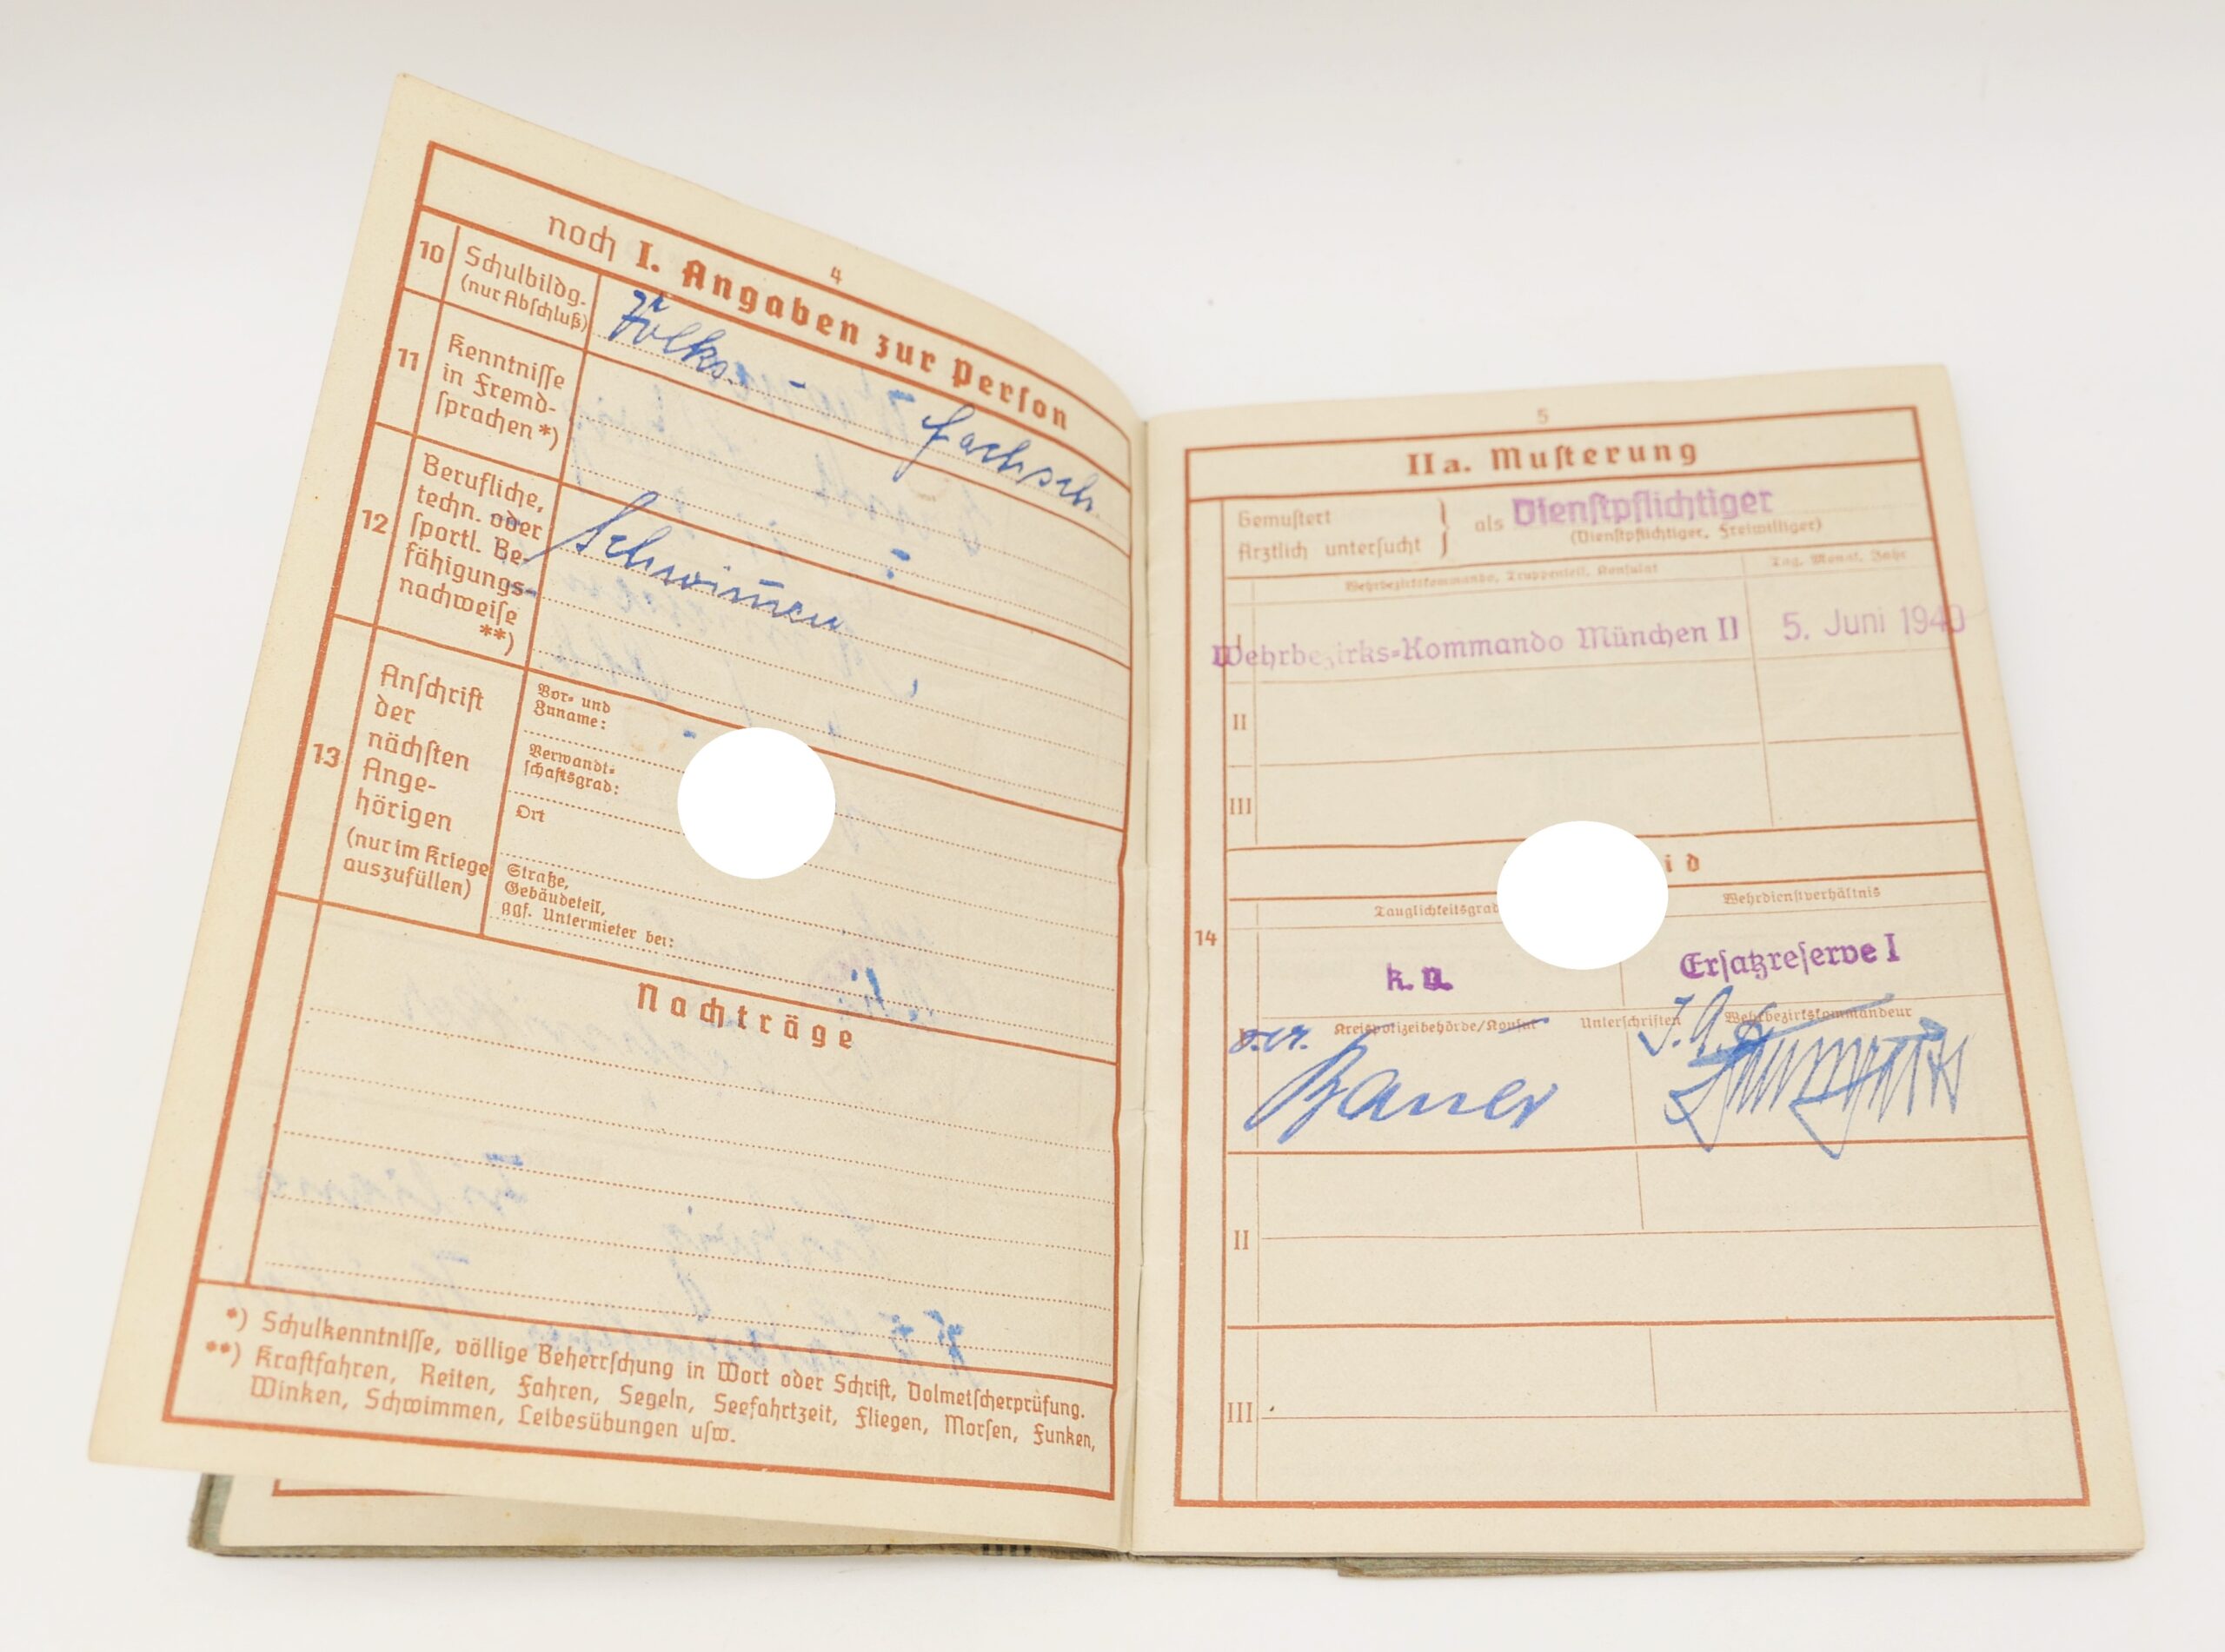 4
noch I. Angaben zur Perſon
10
Schulbildg.
(nur Abſchluß)
Volks- Fachsch.
11
Kenntniſſe
in Fremd-
ſprachen *)
12
Berufliche,
techn. oder
ſportl. Be-
fähigungs-
nachweiſe
**)
Schwim̄en
13
Anſchrift
der
nächſten
Ange-
hörigen
(nur im Kriege
auszufüllen)
Vor- und
Zuname:
Verwandt-
ſchaftsgrad:
Ort
Straße,
Gebäudeteil,
ggf. Untermieter bei:
Nachträge
*) Schulkenntniſſe, völlige Beherrſchung in Wort oder Schrift, Dolmetſcherprüfung.
**) Kraftfahren, Reiten, Fahren, Segeln, Seefahrtzeit, Fliegen, Morſen, Funken,
Winken, Schwimmen, Leibesübungen uſw.
5
IIa. Muſterung
Gemuſtert
Ärztlich unterſucht
als Dienſtpflichtiger
(Dienſtpflichtiger, Freiwilliger)
Wehrbezirkskommando, Truppenteil, Konſulat
Tag, Monat, Jahr
Wehrbezirks-Kommando München II
5. Juni 1940
II
III
id
14
Tauglichkeitsgrad
Wehrdienſtverhältnis
k. v.
Erſatzreſerve I
Kreispolizeibehörde/Konſul
Unterſchriften
Wehrbezirkskommandeur
J. A.
Bauer
II
III